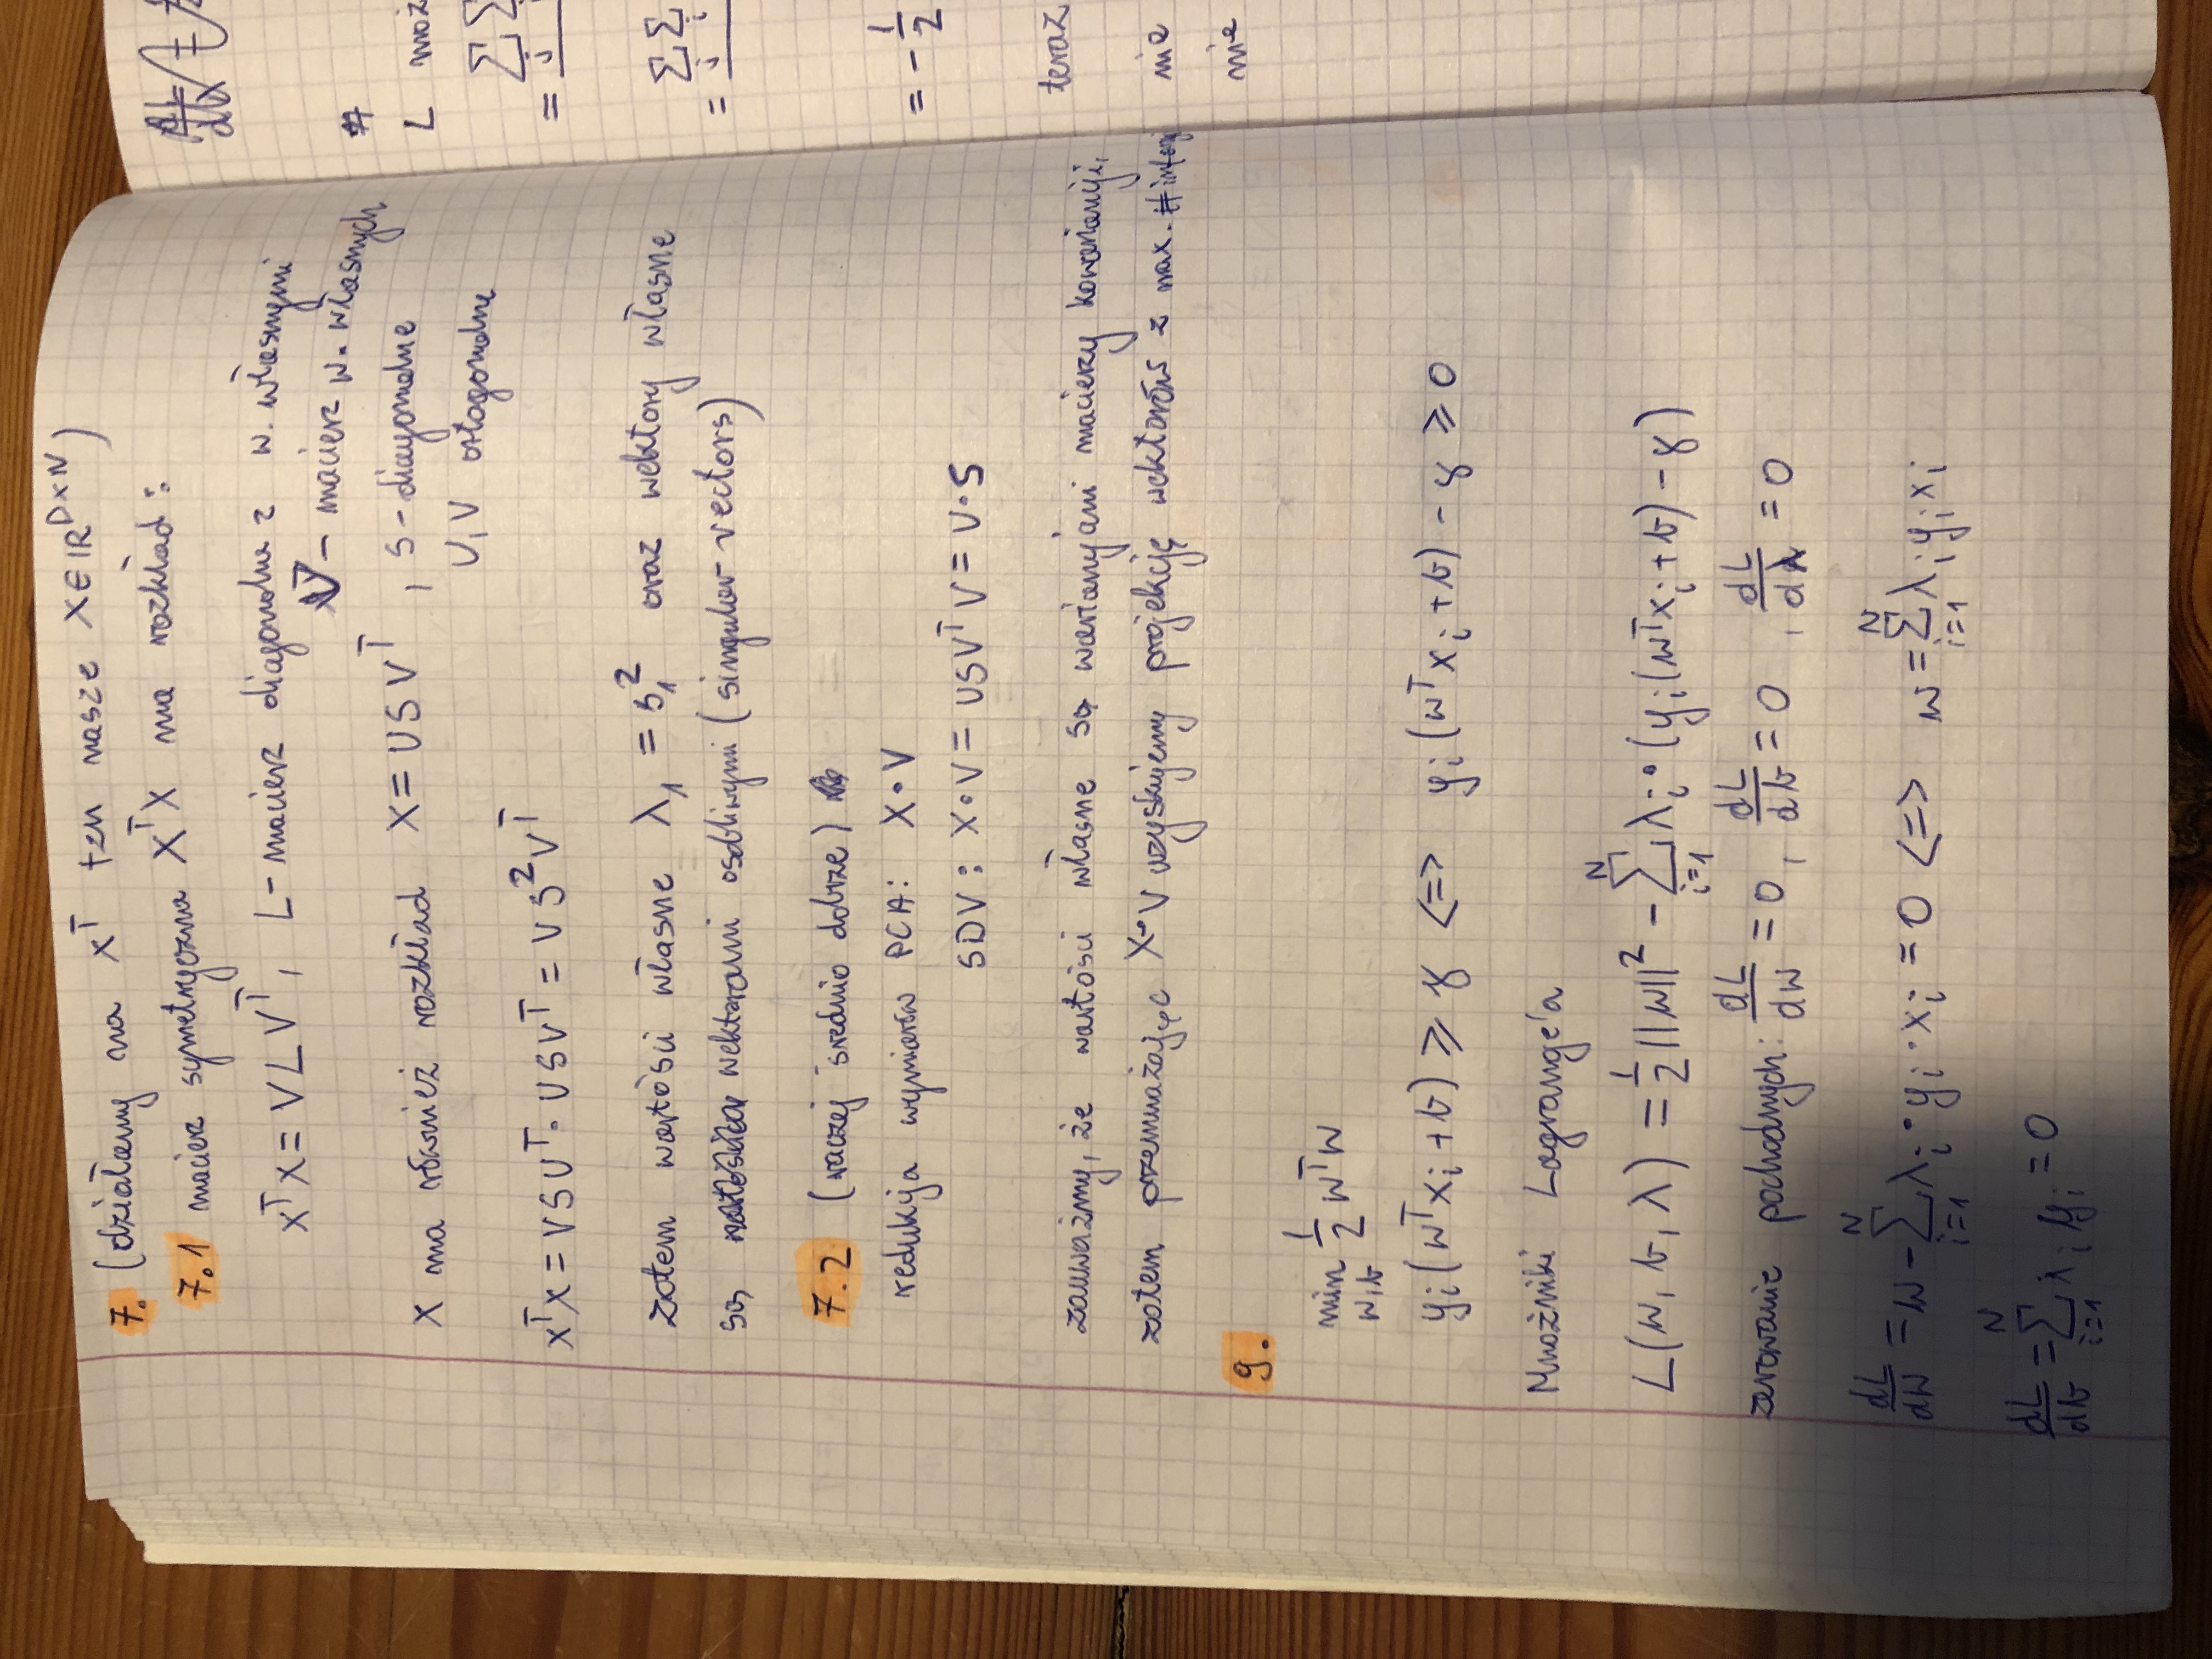 7. (działamy na X^T tzn nasze X∈ℝ^{D×N})
7.1 macierz symetryczna X^T X ma rozkład:
X^T X = V L V^T, L - macierz diagonalna z w. własnymi
V - macierz w. własnych
X ma również rozkład X = U S V^T, S - diagonalne
U, V ortogonalne
X^T X = V S U^T · U S V^T = V S^2 V^T
zatem wartości własne λ_1 = s_1^2 oraz wektory własne
są wektorami osobliwymi (singular vectors)
7.2 (raczej średnio dobrze)
redukcja wymiarów PCA: X·V
SDV: X·V = USV^T V = U·S
zauważmy, że wartości własne są wariancjami macierzy kowariancji,
zatem przemnażając X·V uzyskujemy projekcję wektorów z max. #
9.
min_{w,b} 1/2 w^T w
y_i(w^T x_i + b) ≥ γ <=> y_i(w^T x_i + b) - γ ≥ 0
Mnożniki Lagrange'a
L(w, b, λ) = 1/2 ||w||^2 - ∑_{i=1}^{N} λ_i · (y_i(w^T x_i + b) - γ)
zerowanie pochodnych: dL/dw = 0, dL/db = 0, dL/dλ = 0
dL/dw = w - ∑_{i=1}^{N} λ_i · y_i · x_i = 0 <=> w = ∑_{i=1}^{N} λ_i y_i x_i
dL/db = ∑_{i=1}^{N} λ_i y_i = 0
#
L moż
= ∑_j ∑
= ∑_j ∑_i
= - 1/2
teraz
nie
nie